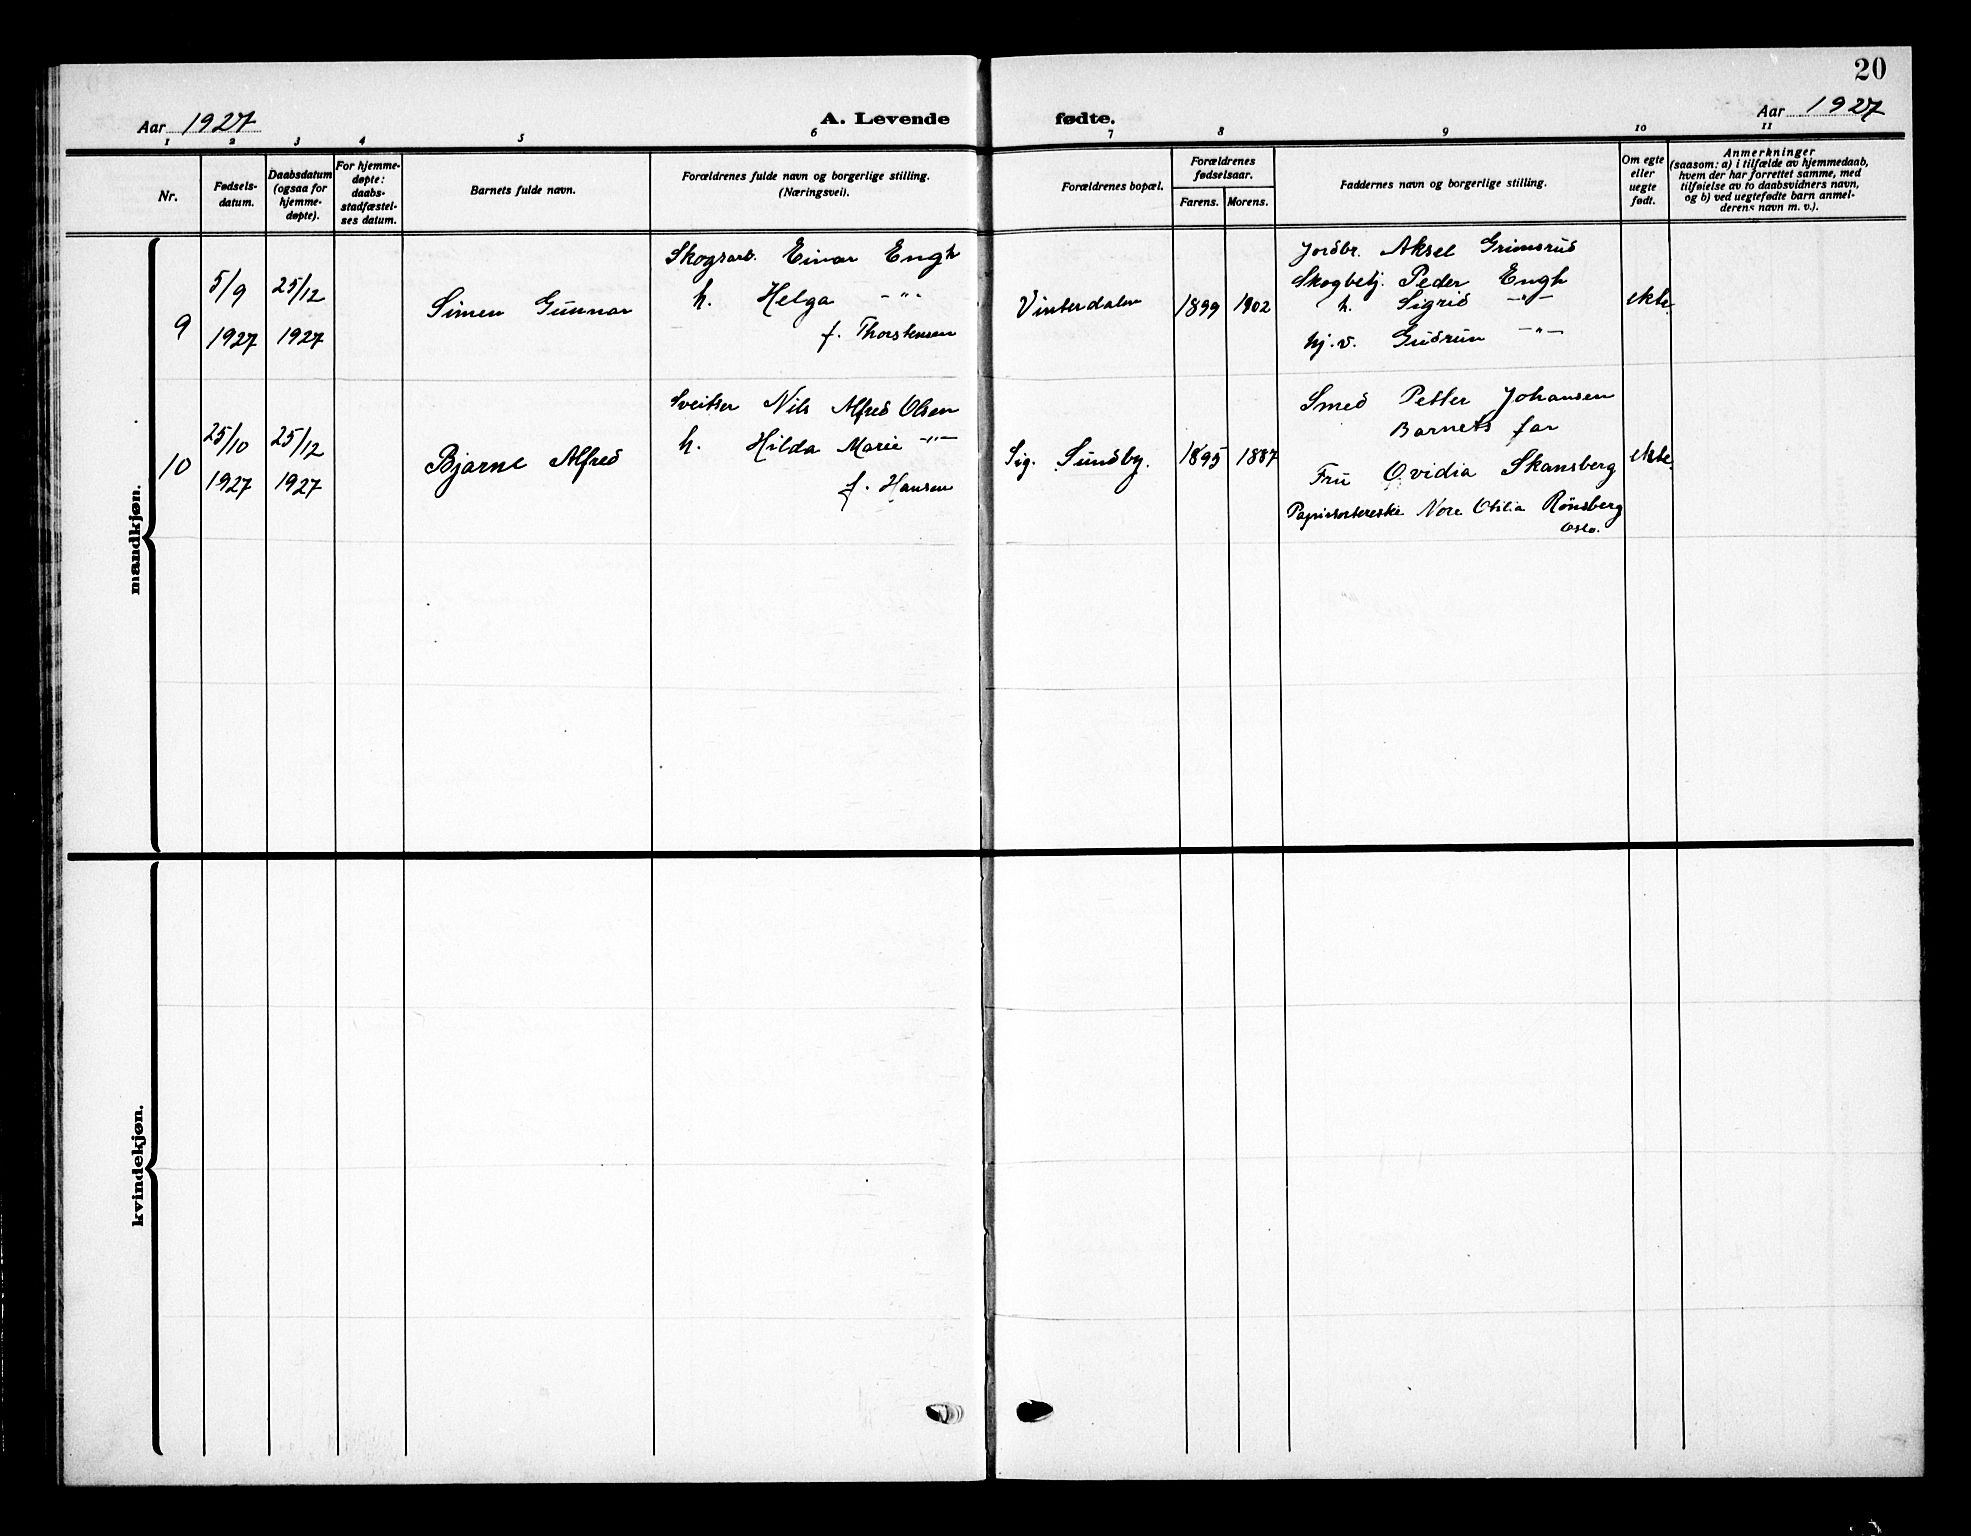 20
Aar 1927
A. Levende
fødte.
Aar 1927
1 2 3 4 5 6 7 8 9 10 11
Nr.
Fødsels-
datum.
Daabsdatum
(ogsaa for
hjemme-
døpte).
For hjemme-
døpte:
daabs-
stadfæstel-
ses datum.
Barnets fulde navn.
Forældrenes fulde navn og borgerlige stilling.
(Næringsvei).
Forældrenes bopæl.
Forældrenes
fødselsaar.
Farens. Morens.
Faddernes navn og borgerlige stilling.
Om egte
eller
uegte
født.
Anmerkninger
(saasom: a) i tilfælde av hjemmedaab,
hvem der har forrettet samme, med
tilføielse av to daabsvidners navn,
og b) ved uegtefødte barn anmel-
derens navn m. v.).
mandkjøn.
9
5/9
1927
25/12
1927
Simen Gunnar
Skogsarb. Einar Engh
h. Helga -"-
f. Thorstensen
Vinterdalen
1899
1902
Jordbr. Aksel Grimsrud
Skogbetj. Peder Engh
h. Sigrid -"-
hj.v. Gudrun -"-
ekte.
10
25/10
1927
25/12
1927
Bjarne Alfred
Sveitser Nils Alfred Olsen
h. Hilda Marie -"-
f. Hansen
Sig. Sundby.
1895
1887
Smed Petter Johansen
Barnets far
Fru Ovidia Skansberg
Papirsorterske Nore Otilia Rønsberg
Oslo.
ekte.
kvindekjøn.